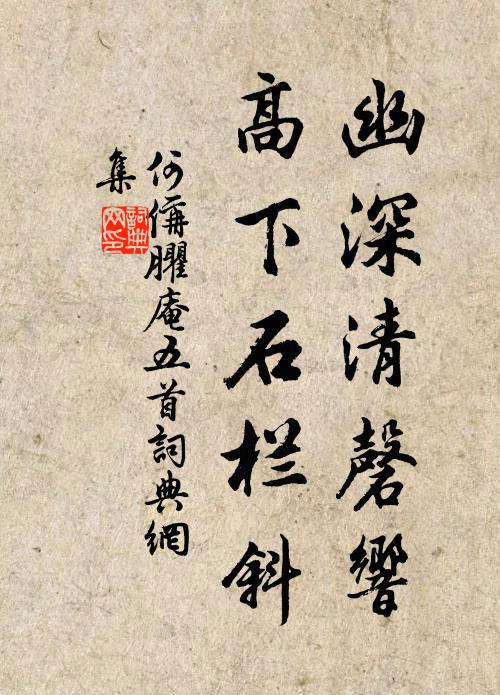 幽深清磬響
高下石栏斜
何偁臞庵五首詞典網
集
詞典网印